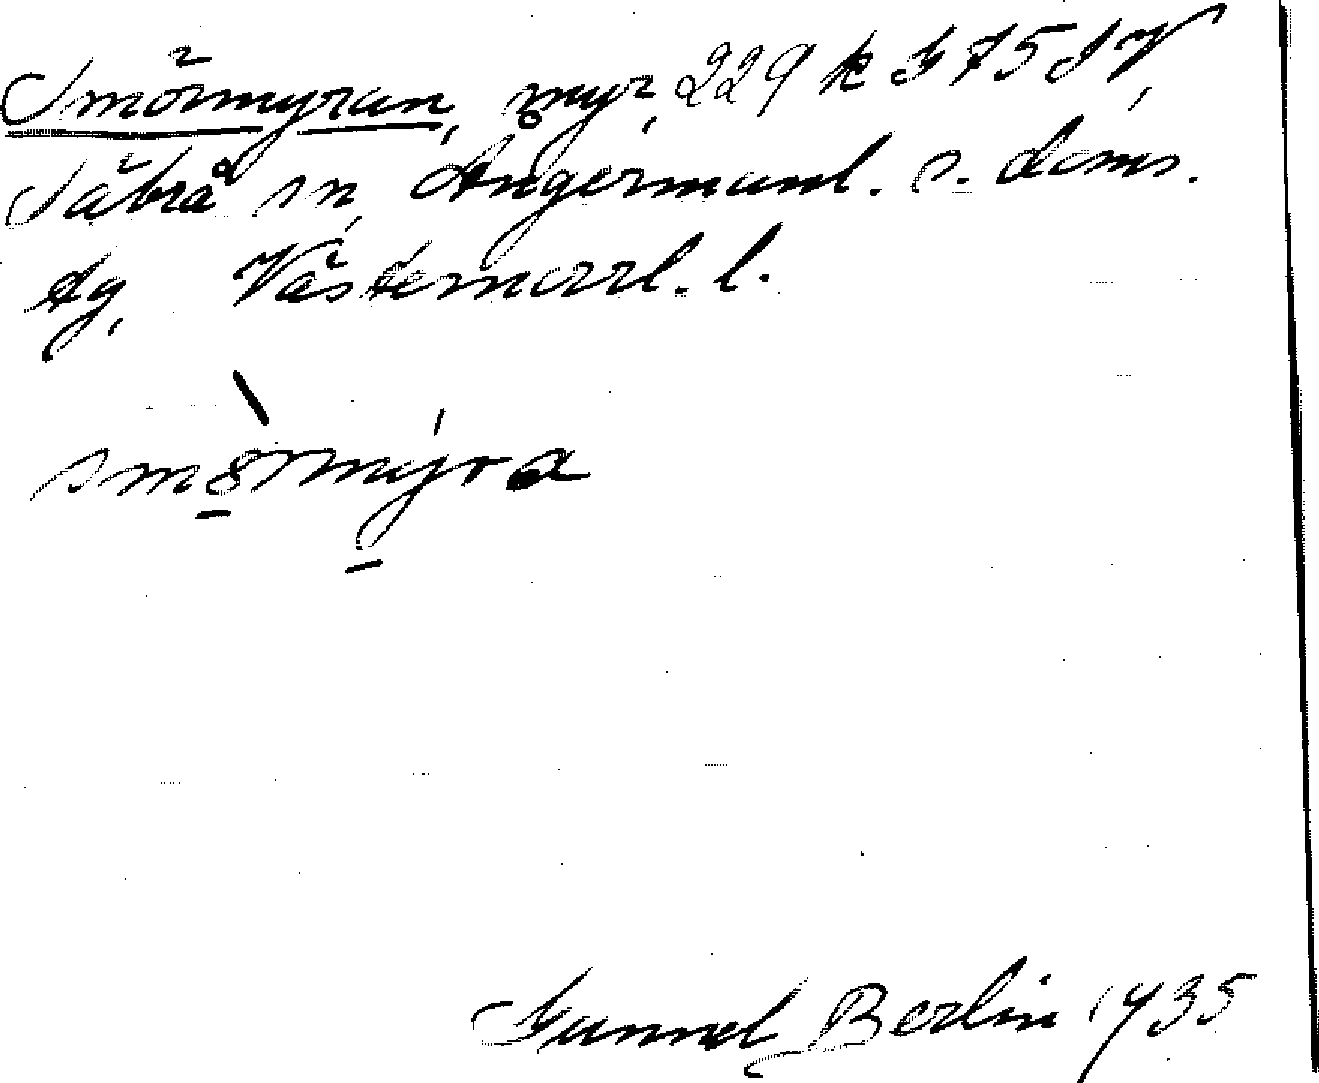 Smörmyran, myr, 229 k G 75 SV,
Säbrå sn, Ångermanl. s. doms.
dg, Västernorrl. l.
smörmyra
Gunnel Berlin 1935